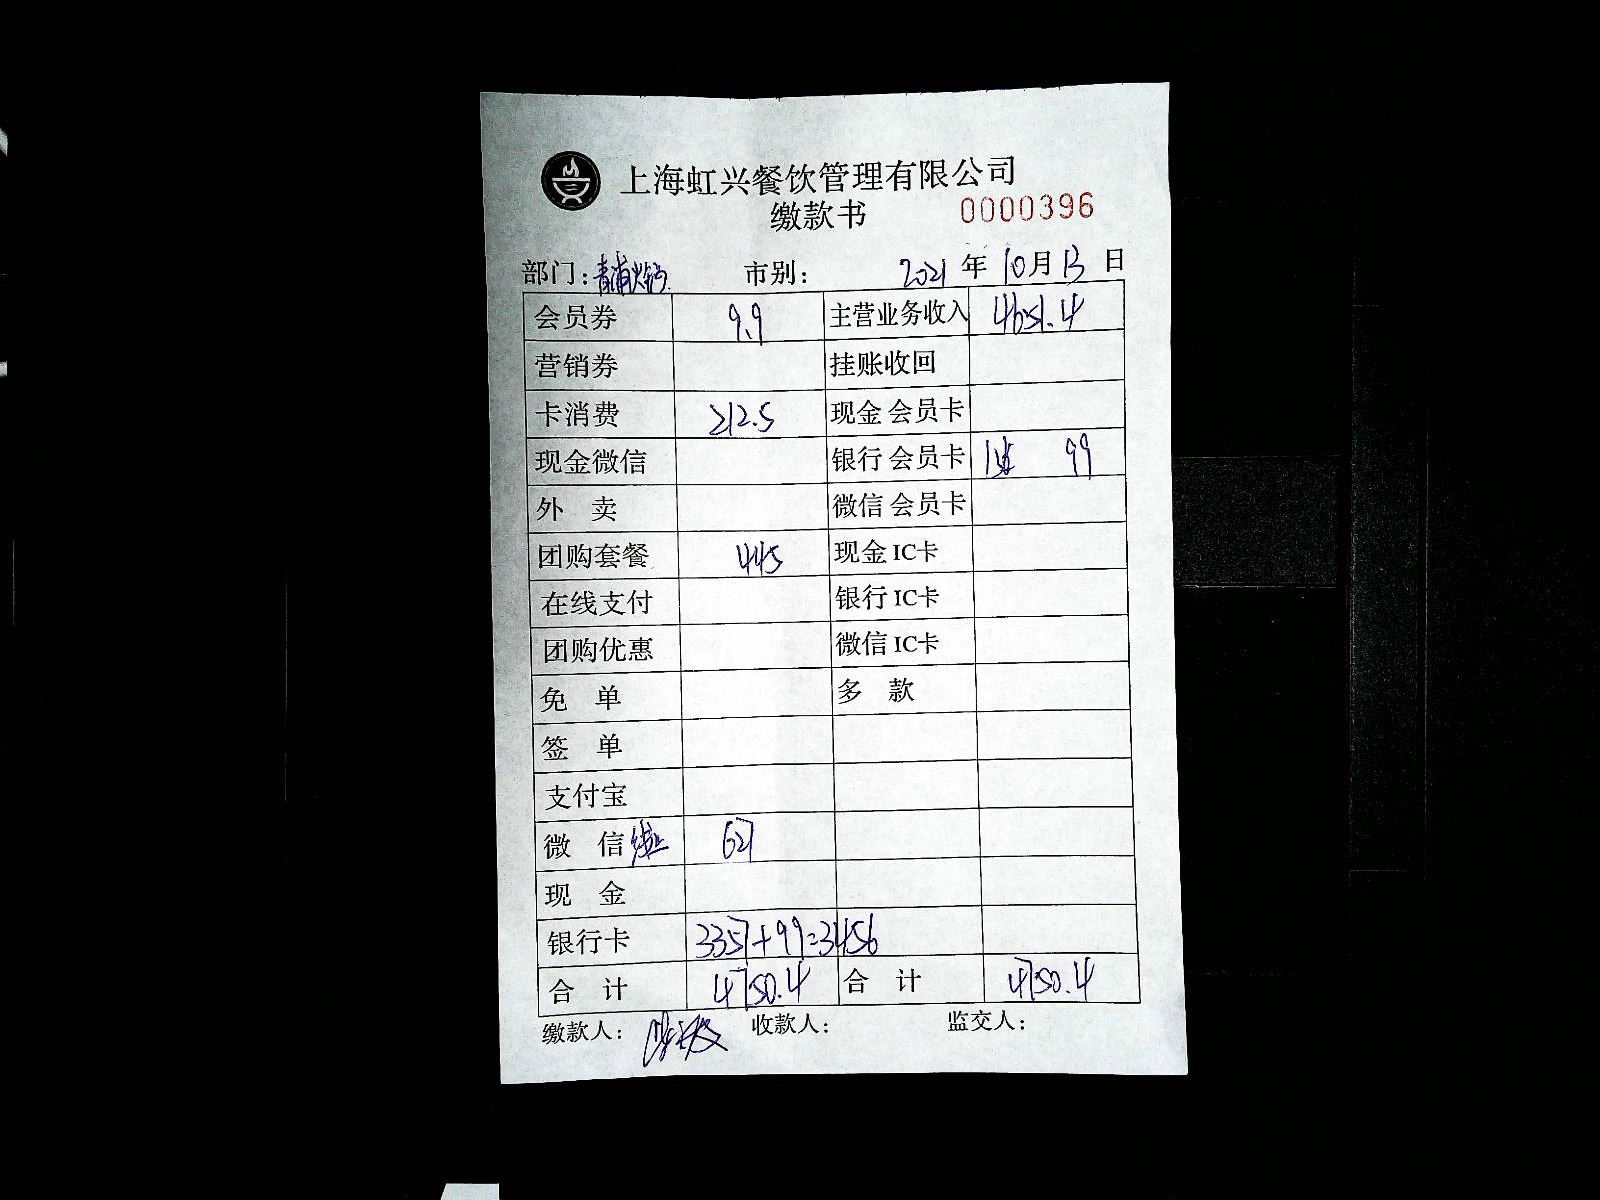 上海虹兴餐饮管理有限公司
缴款书 0000396
部门:青浦火锅 市别: 2021年10月13日
会员券 9.9 主营业务收入 4651.4
营销券 挂账收回
卡消费 212.5 现金 会员卡
现金微信 银行 会员卡 1张 99
外 卖 微信 会员卡
团购套餐 445 现金 IC卡
在线支付 银行 IC卡
团购优惠 微信 IC卡
免 单 多 款
签 单
支付宝
微 信 627
现 金
银行卡 3357+99=3456
合 计 4750.4 合 计 4750.4
缴款人: 收款人: 监交人: